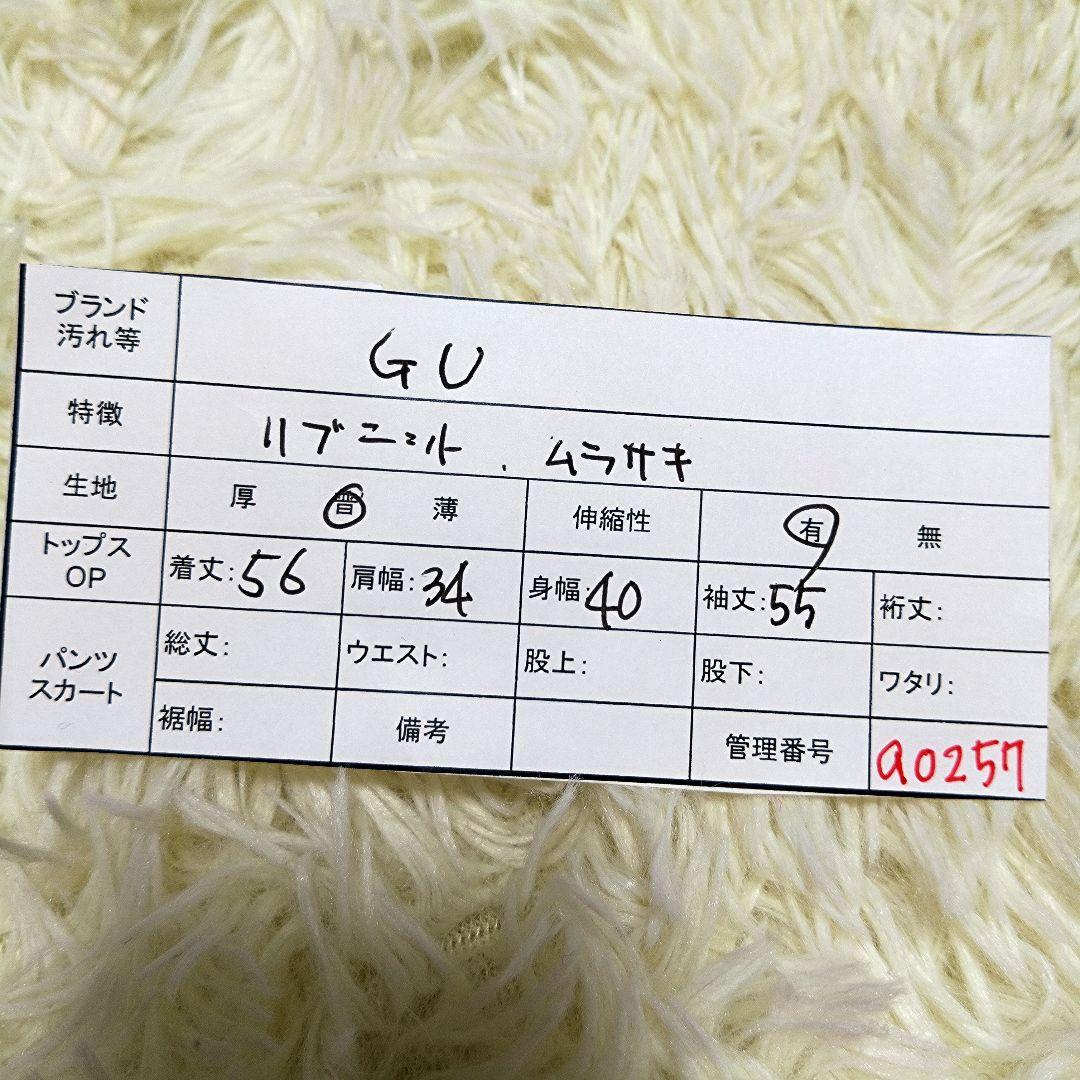 ブランド
汚れ等
GU
特徴
リブニット、ムラサキ
生地 厚 普 薄 伸縮性 有 無
トップス
OP
着丈:56 肩幅:34 身幅:40 袖丈:55 裄丈:
パンツ
スカート
総丈: ウエスト: 股上: 股下: ワタリ:
裾幅: 備考 管理番号 a0257